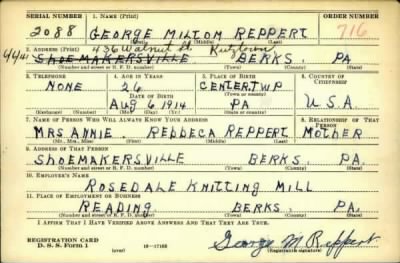 SERIAL NUMBER 1. NAME (Print) ORDER NUMBER
2088 GEORGE MILTOM REPPERT 716
(First) (Middle) (Last)
436 Walnut St. Kutztown
2. ADDRESS (Print)
SHOEMAKERSVILLE BERKS. PA
(Number and street or R. F. D. number) (Town) (County) (State)
3. TELEPHONE 4. AGE IN YEARS 5. PLACE OF BIRTH 6. COUNTRY OF CITIZENSHIP
NONE 26 CENTER.TWP
DATE OF BIRTH
AUG 6 1914 PA U.S.A.
(Mo.) (Day) (Yr.) (State or country)
7. NAME OF PERSON WHO WILL ALWAYS KNOW YOUR ADDRESS 8. RELATIONSHIP OF THAT PERSON
MRS ANNIE. REBBECA REPPERT MOTHER
(Mr., Mrs., Miss) (First) (Middle) (Last)
9. ADDRESS OF THAT PERSON
SHOEMAKERSVILLE BERKS. PA.
(Number and street or R. F. D. number) (Town) (County) (State)
10. EMPLOYER'S NAME
ROSEDALE KNITTING MILL
11. PLACE OF EMPLOYMENT OR BUSINESS
READING BERKS. PA.
(Number and street or R. F. D. number) (Town) (County) (State)
I AFFIRM THAT I HAVE VERIFIED ABOVE ANSWERS AND THAT THEY ARE TRUE.
REGISTRATION CARD
D. S. S. Form 1 (over) 16-17105 George M Reppert
(Registrant's signature)